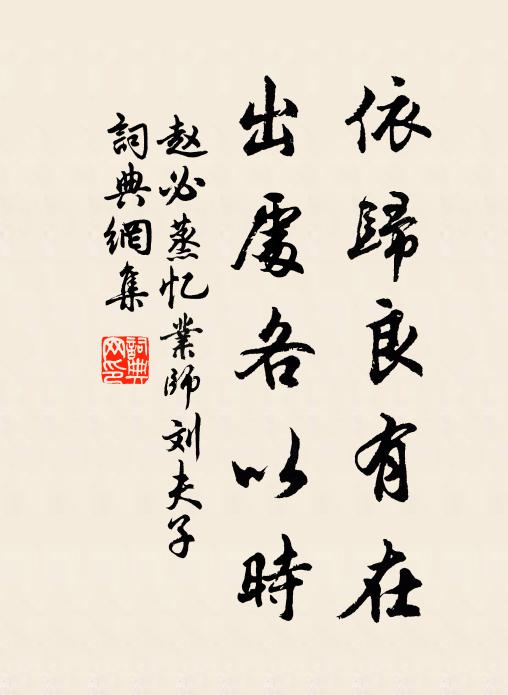 依歸良有在
出處各以時
赵必蒸忆業師刘夫子
詞典網集
詞典网印